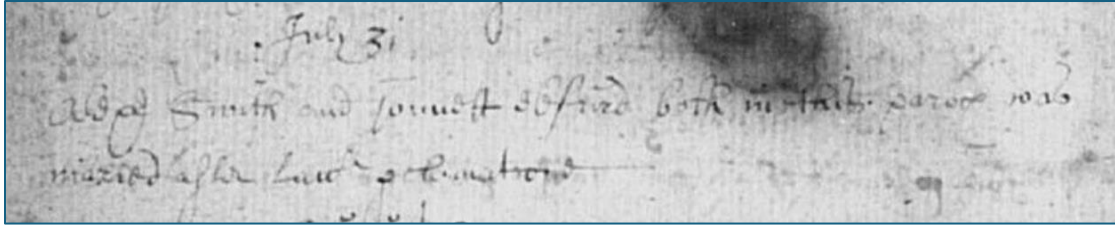 July 31
Smith and Jonnett both in this paroch was
maried after lau: proclamatione